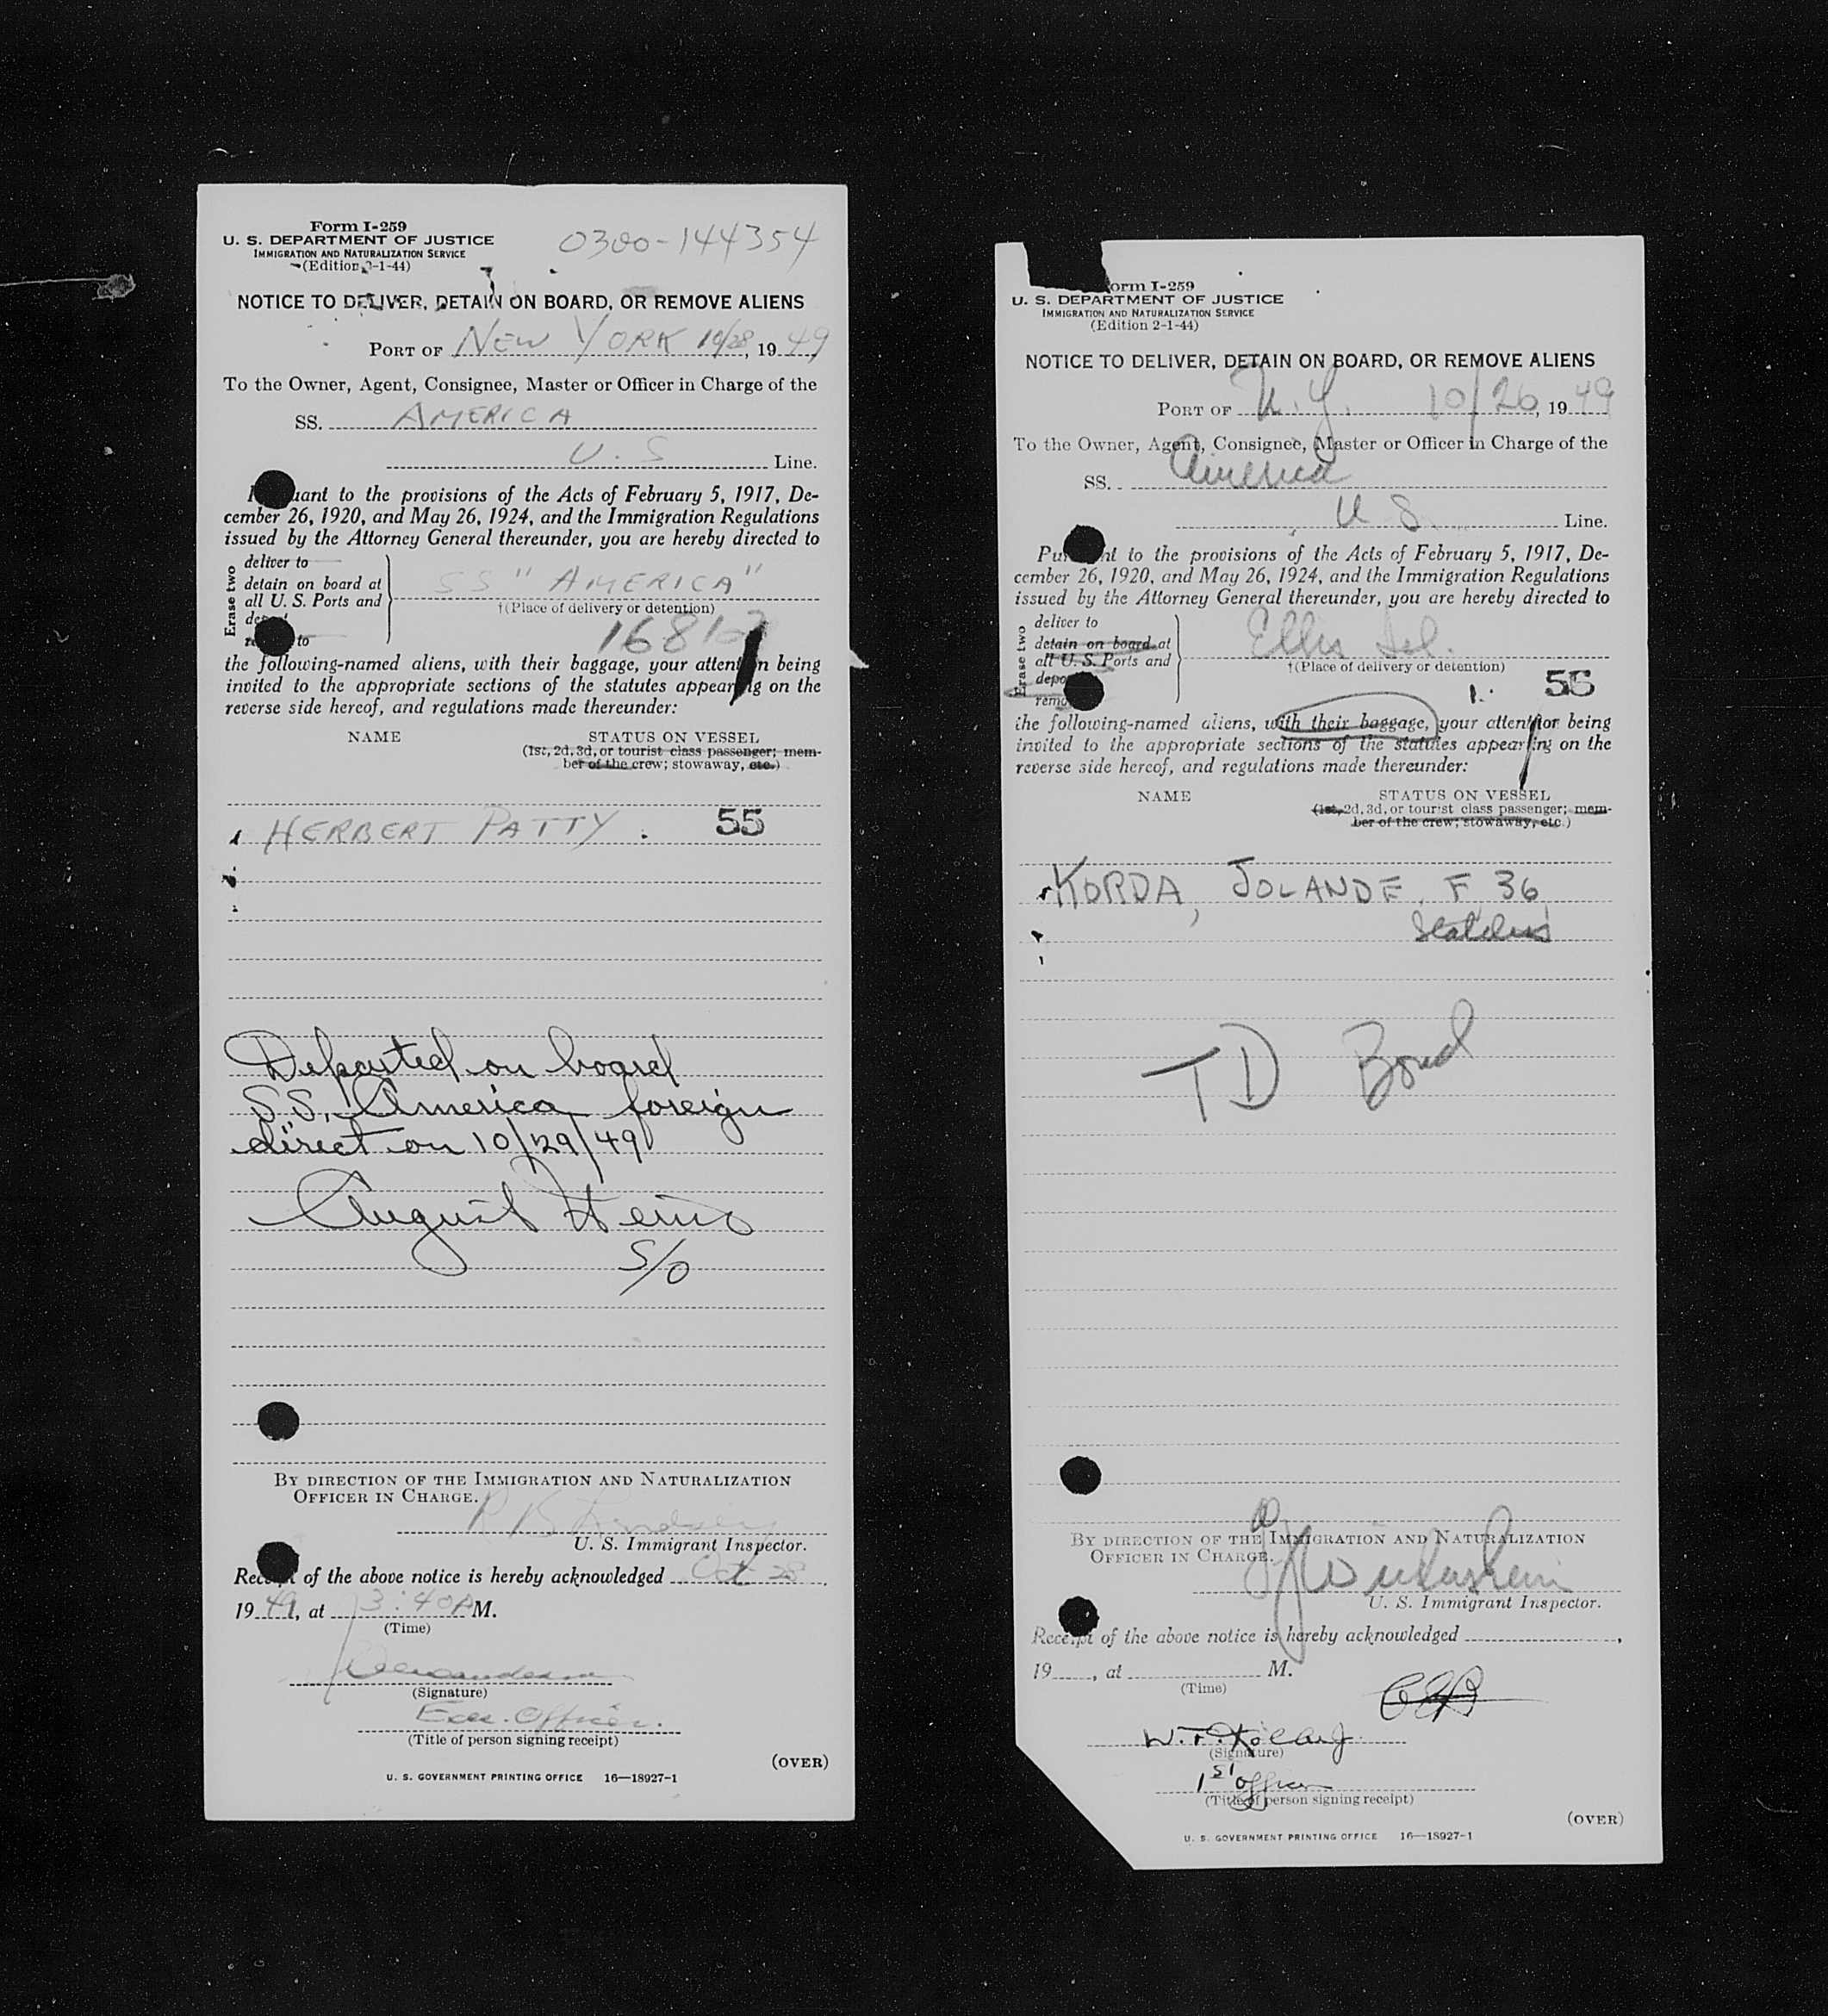 Form I-259
U. S. DEPARTMENT OF JUSTICE
IMMIGRATION AND NATURALIZATION SERVICE
(Edition 2-1-44)
0300-144354
NOTICE TO DELIVER, DETAIN ON BOARD, OR REMOVE ALIENS
PORT OF NEW YORK 10/28, 1949
To the Owner, Agent, Consignee, Master or Officer in Charge of the
SS. AMERICA
U.S Line.
Pursuant to the provisions of the Acts of February 5, 1917, De-
cember 26, 1920, and May 26, 1924, and the Immigration Regulations
issued by the Attorney General thereunder, you are hereby directed to
Erase two
deliver to
detain on board at
all U. S. Ports and
to
SS "AMERICA"
†(Place of delivery or detention)
the following-named aliens, with their baggage, your attention being
invited to the appropriate sections of the statutes appearing on the
reverse side hereof, and regulations made thereunder:
NAME STATUS ON VESSEL
(1st, 2d, 3d, or tourist class passenger; mem-
ber of the crew; stowaway, etc.)
HERBERT PATTY. 55
Departed on board
S.S. America foreign
direct on 10/29/49
August
S/O
BY DIRECTION OF THE IMMIGRATION AND NATURALIZATION
OFFICER IN CHARGE.
U. S. Immigrant Inspector.
Receipt of the above notice is hereby acknowledged Oct 28,
1949, at 3:40 P M.
(Time)
(Signature)
Exec. Officer.
(Title of person signing receipt)
(OVER)
U. S. GOVERNMENT PRINTING OFFICE 16—18927-1
Form I-259
U. S. DEPARTMENT OF JUSTICE
IMMIGRATION AND NATURALIZATION SERVICE
(Edition 2-1-44)
NOTICE TO DELIVER, DETAIN ON BOARD, OR REMOVE ALIENS
PORT OF N.Y. 10/26, 1949
To the Owner, Agent, Consignee, Master or Officer in Charge of the
SS. America
U.S. Line.
Pursuant to the provisions of the Acts of February 5, 1917, De-
cember 26, 1920, and May 26, 1924, and the Immigration Regulations
issued by the Attorney General thereunder, you are hereby directed to
Erase two
deliver to
detain on board at
all U. S. Ports and
Ellis Isl.
†(Place of delivery or detention)
55
the following-named aliens, with their baggage, your attention being
invited to the appropriate sections of the statutes appearing on the
reverse side hereof, and regulations made thereunder:
NAME STATUS ON VESSEL
(1st, 2d, 3d, or tourist class passenger; mem-
ber of the crew; stowaway, etc.)
KORDA, JOLANDE, F 36
TD Bond
BY DIRECTION OF THE IMMIGRATION AND NATURALIZATION
OFFICER IN CHARGE.
U. S. Immigrant Inspector.
Receipt of the above notice is hereby acknowledged ,
19 , at M.
(Time)
W. F.
(Signature)
1st Officer
(Title of person signing receipt)
(OVER)
U. S. GOVERNMENT PRINTING OFFICE 16—18927-1